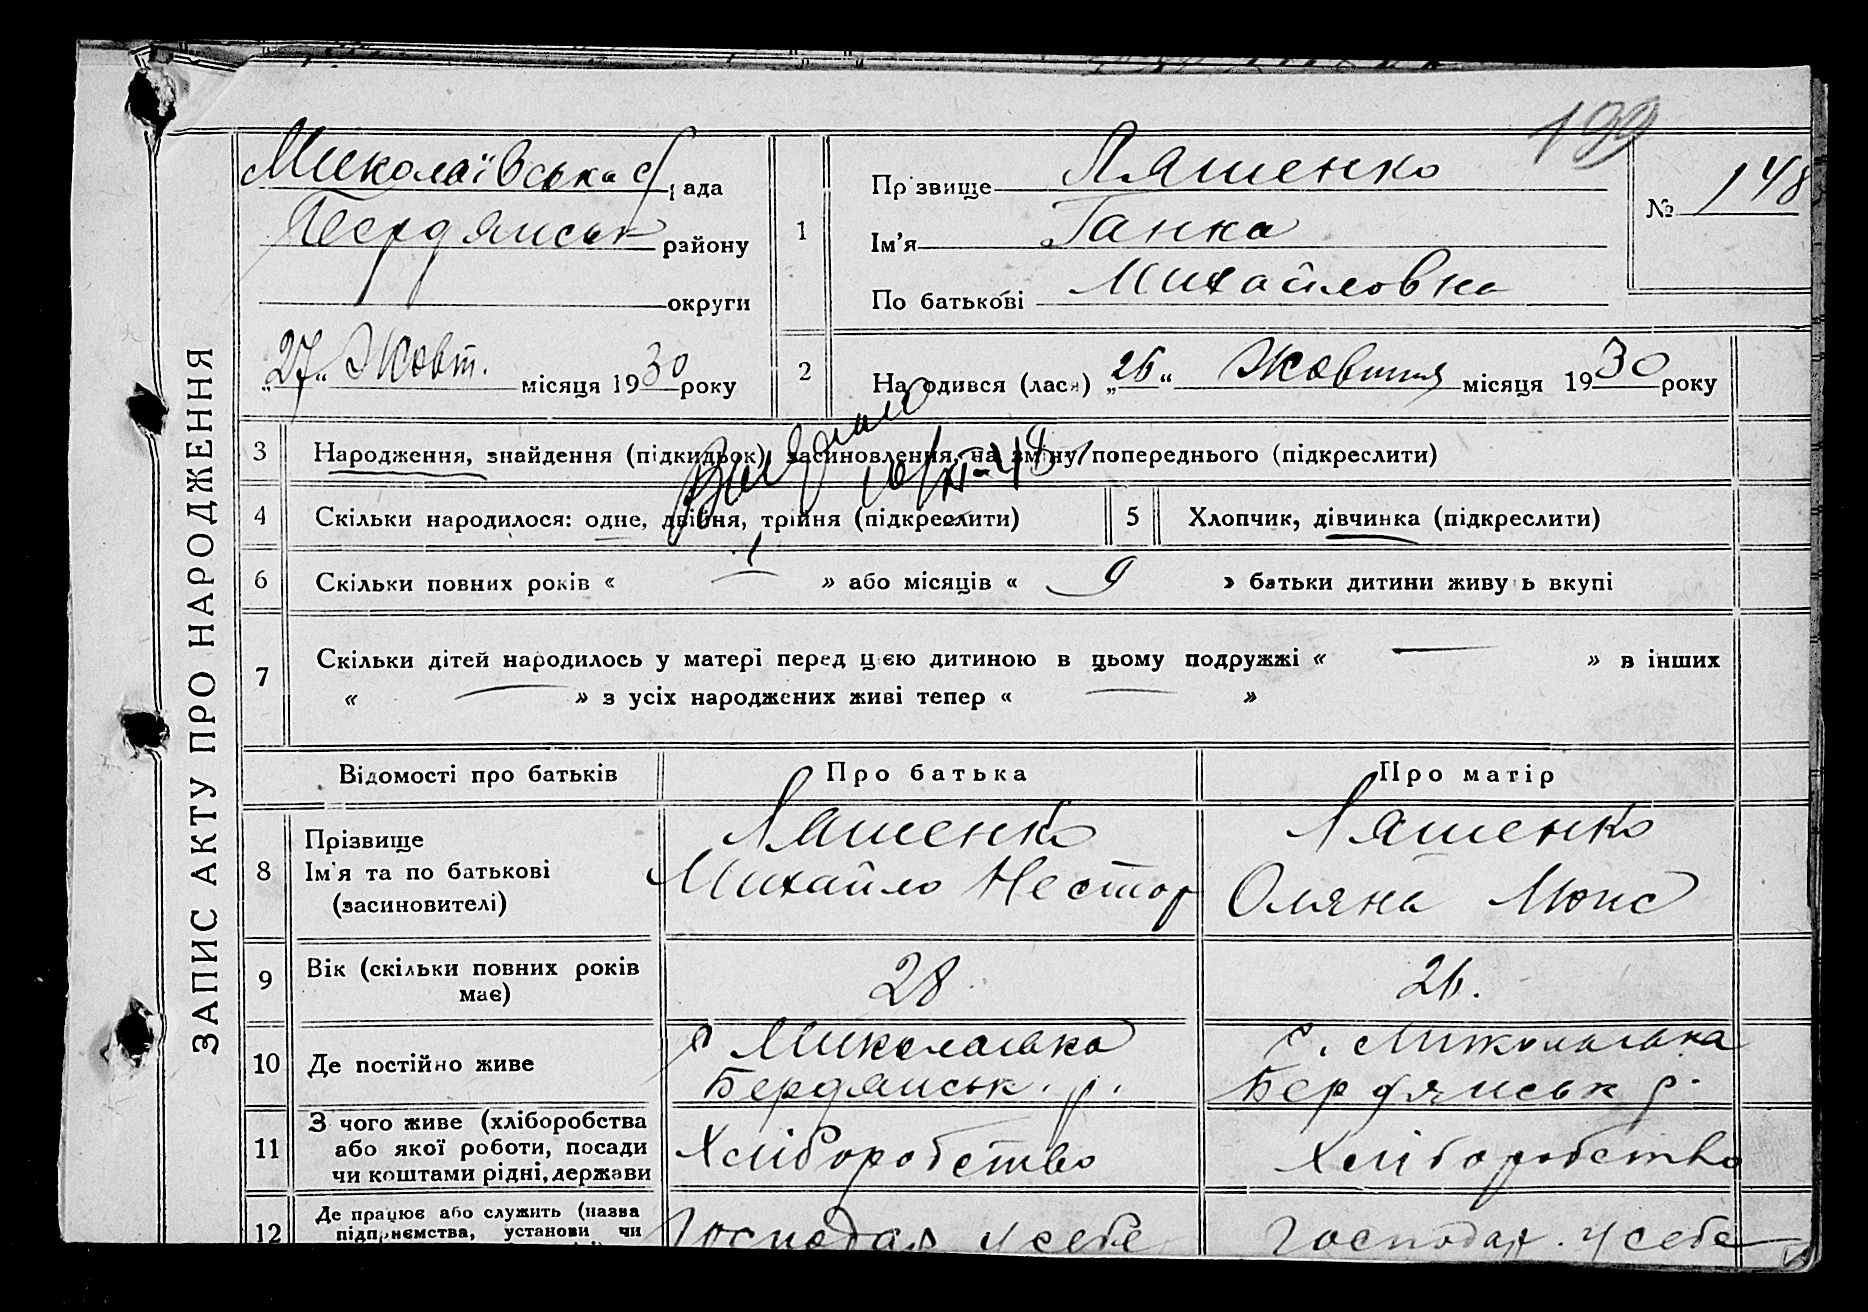 199
ЗАПИС АКТУ ПРО НАРОДЖЕННЯ
Миколаївська с/рада
Бердянськ району
округи
„27“ Жовт. місяця 1930 року
1
Прізвище Ляшенко
Ім'я Ганна
По батькові Михайловна
№ 148
2 Народився (лася) „26“ Жовтня місяця 1930 року
3 Народження, знайдення (підкидьок) засиновлення, на зміну попереднього (підкреслити)
Видано 10/XI-48
4 Скільки народилося: одне, двійня, трійня (підкреслити)
5 Хлопчик, дівчинка (підкреслити)
6 Скільки повних років « 1 » або місяців « 9 » батьки дитини живуть вкупі
7 Скільки дітей народилось у матері перед цією дитиною в цьому подружжі « — » в інших
« — » з усіх народжених живі тепер « — »
Відомості про батьків Про батька Про матір
8 Прізвище
Ім'я та по батькові
(засиновителі)
Ляшенко
Михайло Нестор
Ляшенко
Оляна
9 Вік (скільки повних років
має)
28
26.
10 Де постійно живе
с Миколаівка
Бердянськ. р.
с. Миколаівка
Бердянськ р.
11 З чого живе (хліборобства
або якої роботи, посади
чи коштами рідні, держави
Хліборобство
Хліборобство
12 Де працює або служить (назва
підприємства, установи чи
Господар у себе
Господар. у себе